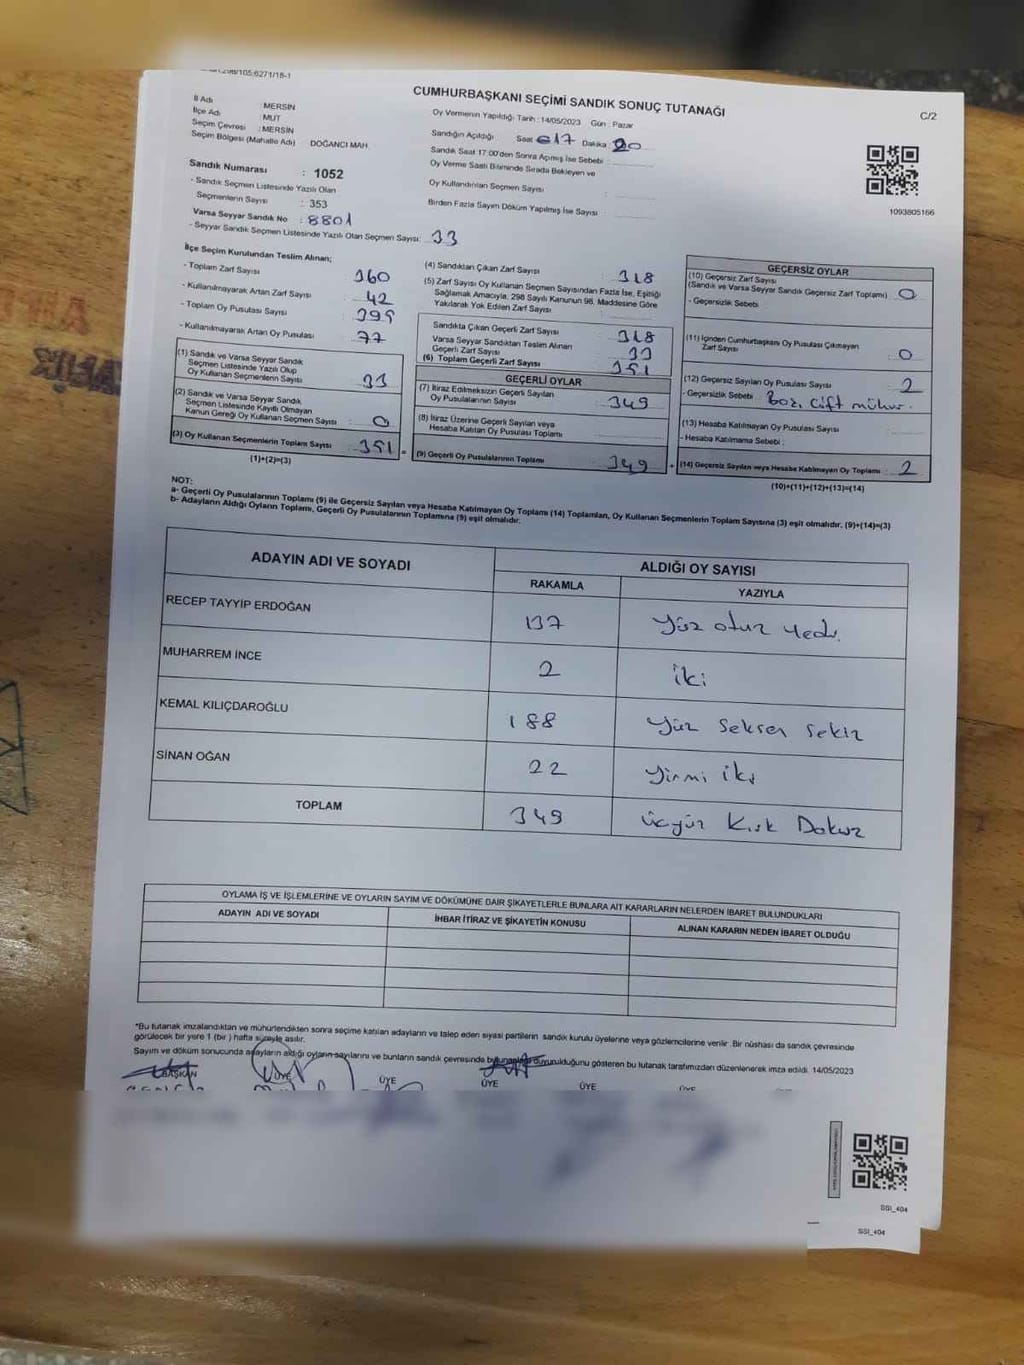 CUMHURBAŞKANI SEÇİMİ SANDIK SONUÇ TUTANAĞI
C/2
İl Adı : MERSİN
İlçe Adı : MUT
Seçim Çevresi : MERSİN
Seçim Bölgesi (Mahalle Adı) DOĞANCI MAH.
Sandık Numarası : 1052
- Sandık Seçmen Listesinde Yazılı Olan
Seçmenlerin Sayısı : 353
Varsa Seyyar Sandık No : 8801
- Seyyar Sandık Seçmen Listesinde Yazılı Olan Seçmen Sayısı: 33
Oy Vermenin Yapıldığı Tarih : 14/05/2023 Gün : Pazar
Sandığın Açıldığı Saat 17 Dakika 20
Sandık Saat 17:00'den Sonra Açmış İse Sebebi :
Oy Verme Saati Bitiminde Sırada Bekleyen ve
Oy Kullandırılan Seçmen Sayısı :
Birden Fazla Sayım Döküm Yapılmış İse Sayısı :
1093805166
İlçe Seçim Kurulundan Teslim Alınan;
- Toplam Zarf Sayısı : 360
- Kullanılmayarak Artan Zarf Sayısı : 42
- Toplam Oy Pusulası Sayısı : 395
- Kullanılmayarak Artan Oy Pusulası : 77
(1) Sandık ve Varsa Seyyar Sandık
Seçmen Listesinde Yazılı Olup
Oy Kullanan Seçmenlerin Sayısı : 33
(2) Sandık ve Varsa Seyyar Sandık
Seçmen Listesinde Kayıtlı Olmayan
Kanun Gereği Oy Kullanan Seçmen Sayısı : 0
(3) Oy Kullanan Seçmenlerin Toplam Sayısı : 351
(1)+(2)=(3)
(4) Sandıktan Çıkan Zarf Sayısı : 318
(5) Zarf Sayısı Oy Kullanan Seçmen Sayısından Fazla İse, Eşitliği
Sağlamak Amacıyla, 298 Sayılı Kanunun 98. Maddesine Göre
Yakılarak Yok Edilen Zarf Sayısı :
Sandıkta Çıkan Geçerli Zarf Sayısı : 318
Varsa Seyyar Sandıktan Teslim Alınan
Geçerli Zarf Sayısı : 33
(6) Toplam Geçerli Zarf Sayısı : 351
GEÇERLİ OYLAR
(7) İtiraz Edilmeksizin Geçerli Sayılan
Oy Pusulasının Sayısı : 349
(8) İtiraz Üzerine Geçerli Sayılan veya
Hesaba Katılan Oy Pusulası Toplamı :
(9) Geçerli Oy Pusulalarının Toplamı : 349
GEÇERSİZ OYLAR
(10) Geçersiz Zarf Sayısı
(Sandık ve Varsa Seyyar Sandık Geçersiz Zarf Toplamı) : 0
- Geçersizlik Sebebi
(11) İçinden Cumhurbaşkanı Oy Pusulası Çıkmayan
Zarf Sayısı : 0
(12) Geçersiz Sayılan Oy Pusulası Sayısı : 2
- Geçersizlik Sebebi : çift mühür.
(13) Hesaba Katılmayan Oy Pusulası Sayısı :
- Hesaba Katılmama Sebebi :
(14) Geçersiz Sayılan veya Hesaba Katılmayan Oy Toplamı : 2
(10)+(11)+(12)+(13)=(14)
NOT:
a- Geçerli Oy Pusulalarının Toplamı (9) ile Geçersiz Sayılan veya Hesaba Katılmayan Oy Toplamı (14) Toplamları, Oy Kullanan Seçmenlerin Toplam Sayısına (3) eşit olmalıdır. (9)+(14)=(3)
b- Adayların Aldığı Oyların Toplamı, Geçerli Oy Pusulalarının Toplamına (9) eşit olmalıdır.
ADAYIN ADI VE SOYADI
ALDIĞI OY SAYISI
RAKAMLA YAZIYLA
RECEP TAYYİP ERDOĞAN 137 Yüz otuz Yedi.
MUHARREM İNCE 2 iki
KEMAL KILIÇDAROĞLU 188 Yüz Seksen Sekiz
SİNAN OĞAN 22 Yirmi iki
TOPLAM 349 üçyüz Kırk Dokuz
OYLAMA İŞ VE İŞLEMLERİNE VE OYLARIN SAYIM VE DÖKÜMÜNE DAİR ŞİKAYETLERLE BUNLARA AİT KARARLARIN NELERDEN İBARET BULUNDUKLARI
ADAYIN ADI VE SOYADI İHBAR İTİRAZ VE ŞİKAYETİN KONUSU ALINAN KARARIN NEDEN İBARET OLDUĞU
*Bu tutanak imzalandıktan ve mühürlendikten sonra seçime katılan adayların ve talep eden siyasi partilerin sandık kurulu üyelerine veya gözlemcilerine verilir. Bir nüshası da sandık çevresinde
görülecek bir yere 1 (bir) hafta süreyle asılır.
Sayım ve döküm sonucunda adayların aldığı oyların sayılarını ve bunların sandık çevresinde duyurulduğunu gösteren bu tutanak tarafımızdan düzenlenerek imza edildi. 14/05/2023
BAŞKAN ÜYE ÜYE ÜYE ÜYE ÜYE
SSI_404
SSI_404